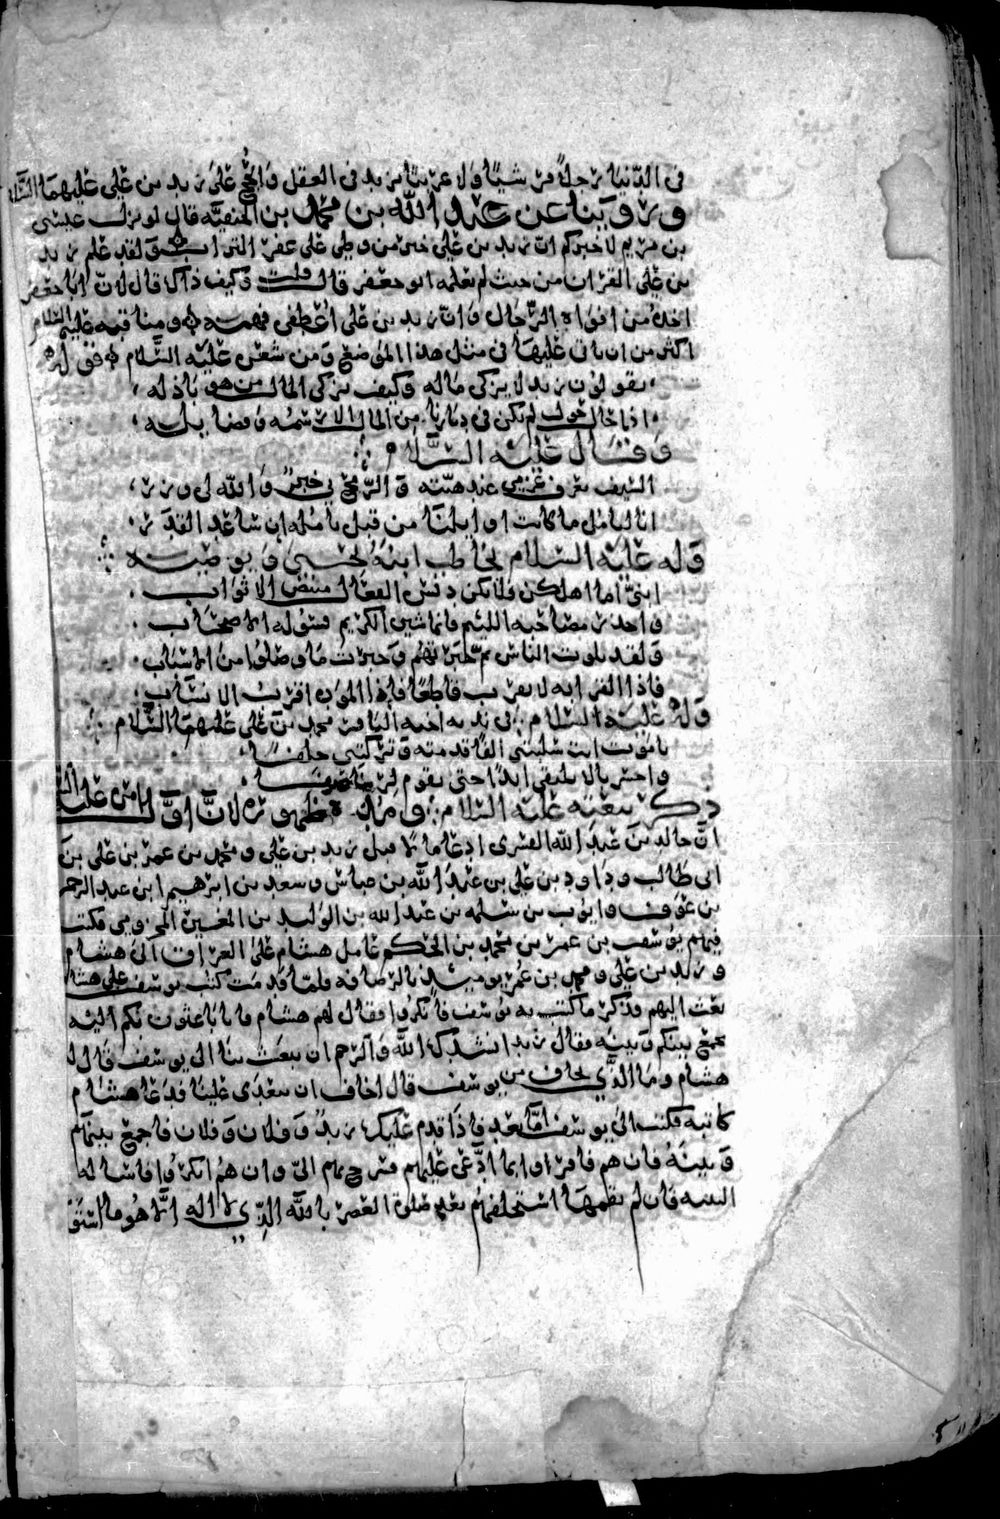 في الدنيا رجلا قرشيا ولا عربيا يزيد في العقل والحجى على زيد بن علي عليهما السلام
وروينا عن عبد الله بن محمد بن الحنفيه قال لو نزل عيسى
بن مريم لاخبركم ان زيد بن علي خير من وطي على عفر التراب ولقد علم زيد
بن علي القران من حيث لم يعلمه ابو جعفر قال قلت وكيف ذاك قال لان ابا جعفر
اخذه من افواه الرجال وان زيد بن علي اعطي فهمه ومناقبه عليه السلام
اكثر من ان ياتي عليها في مثل هذا الموضع ومن شعره عليه السلام فوله
يقولون زيد لا يزكي ماله وكيف يزكي المال من هو باذله
اذا حال حول لم يكن في ديارنا من المال الا رسمه وفضايله
وقال عليه السلام
السيف يعرف عزمي عند هبته والرمح بي خبر والله لي وزر
انا لنامل ما كانت اوايلنا من قبل تامله ان ساعد القدر
وله عليه السلام يخاطب ابنه يحيى ويوصيه
ابني اما اهلكن فلا تكن دنس الفعال مبيض الاثواب
واحذر مصاحبة اللئيم فانما شين الكريم فسولة الاصحاب
ولقد بلوت الناس ثم خبرتهم وخبرت ما وصلوا من الاسباب
فاذا القرابه لا تقرب قاطعا واذا الموده اقرب الانساب
وله عليه السلام في مرثية اخيه الباقر محمد بن علي عليهما السلام
يا موت انت سلبتني الفا قدمته وتركتني خلفا
واحسرتا لا نلتقي ابدا حتى نقوم لربنا صفا
ذكر بيعته عليه السلام ومدة ظهوره لان اول امره عليه السلام
ان خالد بن عبد الله القسري ادعا مالا قبل زيد بن علي ومحمد بن عمر بن علي بن
ابي طالب وداود بن علي بن عبد الله بن عباس وسعد بن ابرهيم ابن عبد الرحمن
بن عوف وايوب بن سلمه بن عبد الله بن الوليد بن المغيره المخزومي فكتب
فيهم يوسف بن عمر بن محمد بن الحكم عامل هشام على العراق الى هشام
وزيد بن علي ومحمد بن عمر يوميذ بالرصافه فلما قدمت كتب يوسف على هشام
بعث اليهم فذكر ما كتب به يوسف فانكروا فقال لهم هشام فانا باعثون بكم اليه
يجمع بينكم وبينه فقال زيد انشدك الله والرحم ان تبعث بنا الى يوسف قال له
هشام وما الذي تخاف من يوسف قال اخاف ان يعتدي علينا فدعا هشام
كاتبه فكتب الى يوسف اما بعد فاذا قدم عليك زيد وفلان وفلان فاجمع بينهم
وبينه فان هم اقروا بما ادعي عليهم فسرح بهم الي وان هم انكروا فاساله
البينه فان لم يقمها استحلفهم بعد صلوة العصر بالله الذي لا اله الا هو ما استود